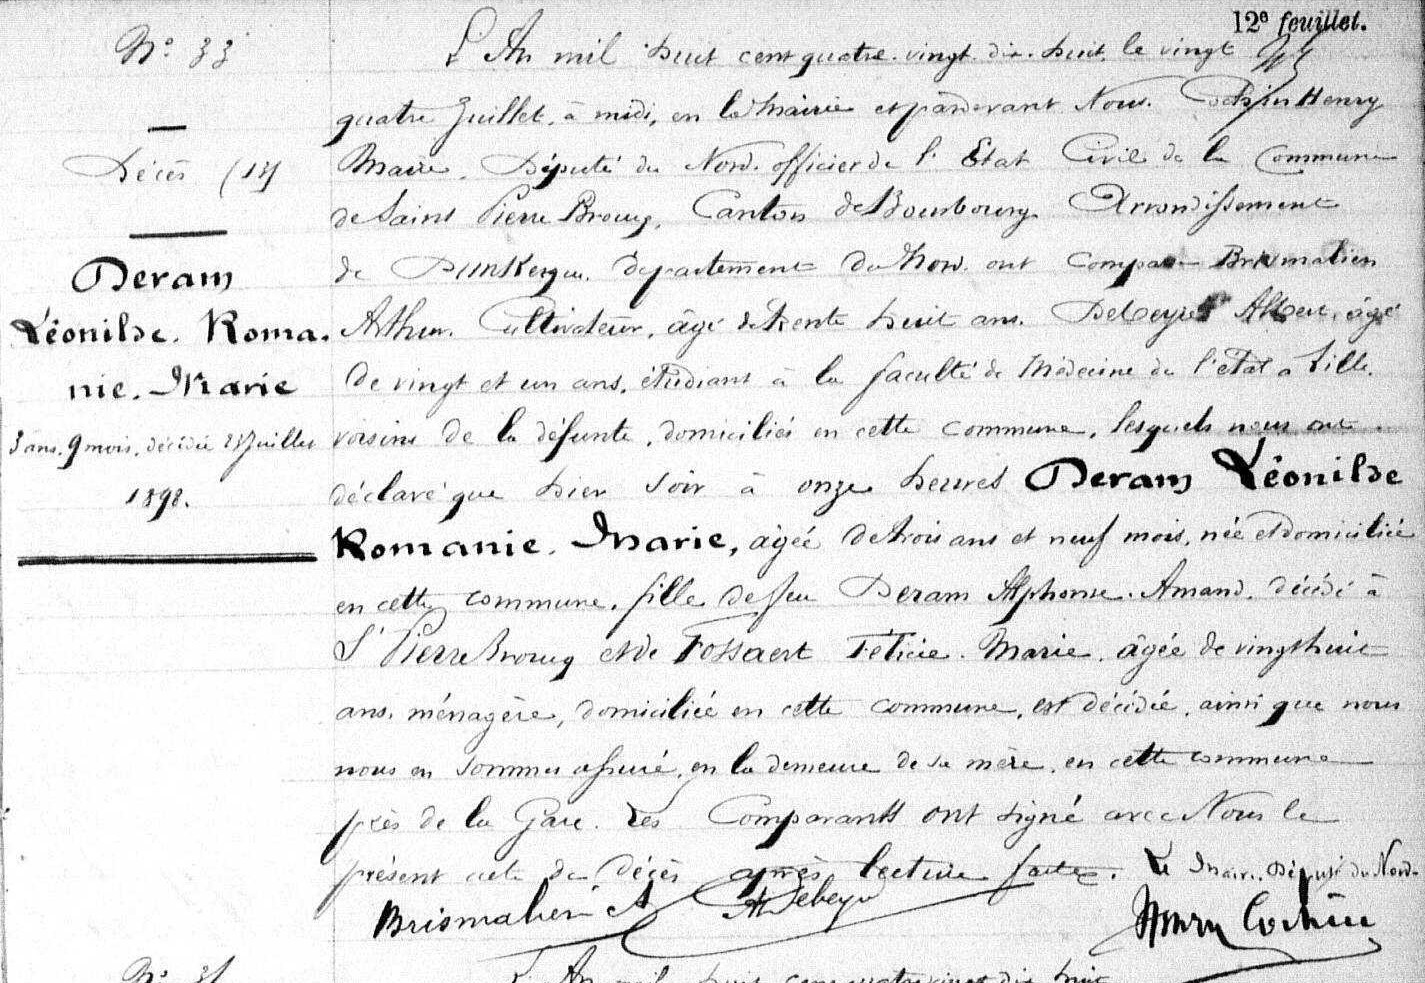 12e feuillet.
No 33
Décès (18)
Deram
Léonilde. Roma.
nie. Marie
3 ans. 9 mois. décédée 23 Juillet
1898.
L'An mil huit cent quatre. vingt. dix. huit, le vingt
quatre Juillet, à midi, en la Mairie et pardevant Nous. Henry
Maire. Député du Nord. officier de l'Etat Civil de la Commune
de Saint Pierre Brouck, Canton de Bourbourg Arrondissement
de Dunkerque. département du Nord. ont Comparu Brismalien
Arthur. Cultivateur, âgé de trente huit ans. Debeyre Albert, âgé
de vingt et un ans, étudiant à la faculté de Médecine de l'état à Lille.
voisins de la défunte, domiciliés en cette commune, lesquels nous ont
déclaré que hier soir à onze heures Deram Léonilde
Romanie. Marie, agée de trois ans et neuf mois, née et domiciliée
en cette commune, fille de feu Deram Alphonse. Amand. décédé à
St Pierre Brouck et de Fossaert Félicie. Marie. âgée de vingt huit
ans. ménagère, domiciliée en cette commune, est décédée, ainsi que nous
nous en sommes assuré, en la demeure de sa mère, en cette commune
près de la Gare. Les Comparants ont signé avec Nous le
présent acte de décès après lecture faite. Le Maire, Député du Nord.
Brismalien A Debeyre Henry Cochin
No 34
L'An mil huit cent quatre vingt dix huit